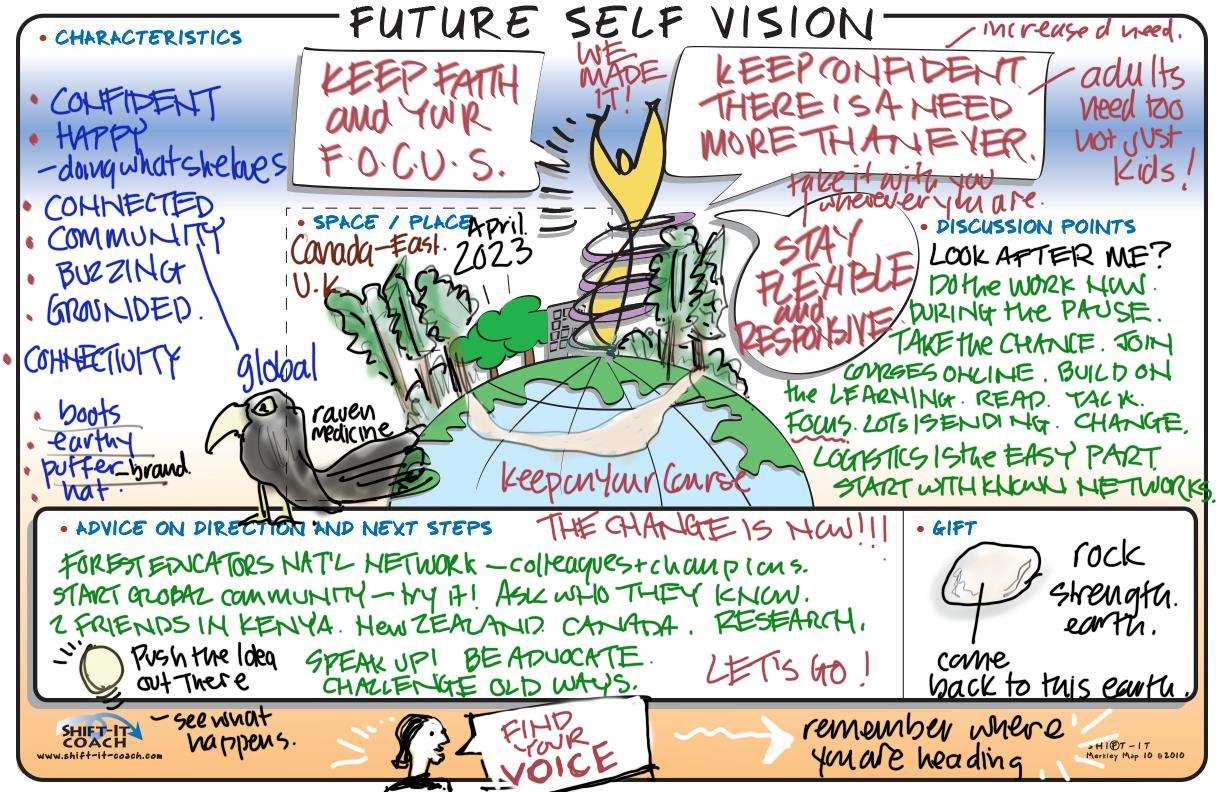 FUTURE SELF VISION
• CHARACTERISTICS
• CONFIDENT
• HAPPY
- doing what she loves
• CONNECTED
• COMMUNITY
• BUZZING
• GROUNDED.
• CONNECTIVITY
global
• boots
• earthy
• puffer - brand.
• hat.
KEEP FAITH
and YOUR
F.O.C.U.S.
WE
MADE
IT!
KEEP CONFIDENT
THERE IS A NEED
MORE THAN EVER.
increased need.
adults
need too
not just
kids!
take it with you
wherever you are.
• SPACE / PLACE
Canada-East.
U.K.
April.
2023
STAY
FLEXIBLE
and
RESPONSIVE
• DISCUSSION POINTS
LOOK AFTER ME?
Do the WORK NOW.
DURING the PAUSE.
TAKE the CHANCE. JOIN
COURSES ONLINE. BUILD ON
the LEARNING. READ. TALK.
FOCUS. LOTS IS ENDING. CHANGE.
LOGISTICS IS the EASY PART.
START WITH KNOWN NETWORKS.
raven
medicine
keep on your Course
• ADVICE ON DIRECTION AND NEXT STEPS
THE CHANGE IS NOW!!!
FOREST EDUCATORS NAT'L NETWORK - colleagues + champions.
START GLOBAL COMMUNITY - try it! ASK WHO THEY KNOW.
2 FRIENDS IN KENYA. New ZEALAND. CANADA. RESEARCH.
Push the Idea
out There
- see what
happens.
SPEAK UP! BE ADVOCATE.
CHALLENGE OLD WAYS.
LET'S GO!
• GIFT
rock
strength.
earth.
come
back to this earth.
SHIFT-IT
COACH
www.shift-it-coach.com
FIND
YOUR
VOICE
remember where
you are heading
SHIFT-IT
Merkley Map 10 ©2010